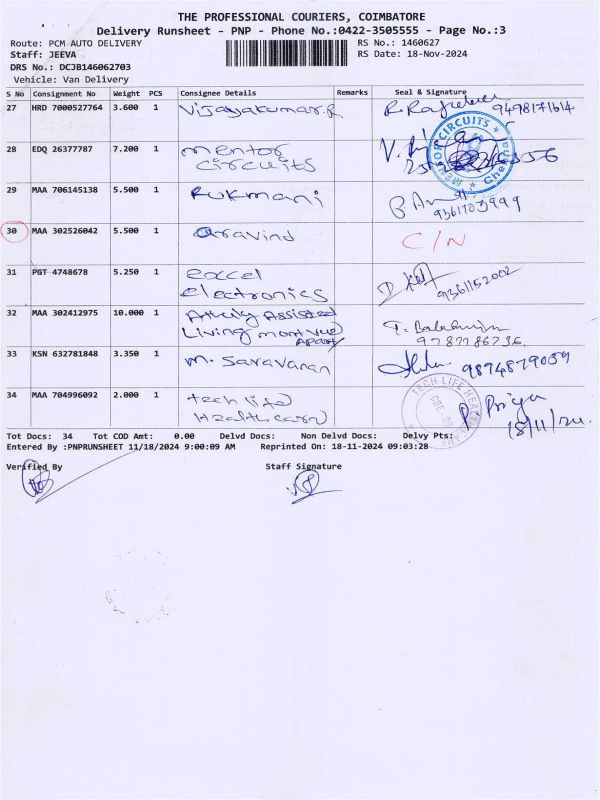 THE PROFESSIONAL COURIERS, COIMBATORE
Delivery Runsheet - PNP - Phone No.:0422-3505555 - Page No.:3
Route: PCM AUTO DELIVERY RS No.: 1460627
Staff: JEEVA RS Date: 18-Nov-2024
DRS No.: DCJB146062703
Vehicle: Van Delivery
S No Consignment No Weight PCS Consignee Details Remarks Seal & Signature
27 HRD 7000527764 3.600 1 Vijayakumar.R 9498171614
28 EDQ 26377787 7.200 1 mentor
circuits
MENTOR CIRCUITS
29 MAA 706145138 5.500 1 Rukmani
30 MAA 302526042 5.500 1 aravind C/N
31 PGT 4748678 5.250 1 excel
electronics 9361152002
32 MAA 302412975 10.000 1 Assisted
Living
33 KSN 632781848 3.350 1 M. Saravanan 9894879059
34 MAA 704996092 2.000 1 tech life
Healthcare
TECH LIFE
P. Priya
18/11/24.
Tot Docs: 34 Tot COD Amt: 0.00 Delvd Docs: Non Delvd Docs: Delvy Pts:
Entered By :PNPRUNSHEET 11/18/2024 9:00:09 AM Reprinted On: 18-11-2024 09:03:28
Verified By Staff Signature